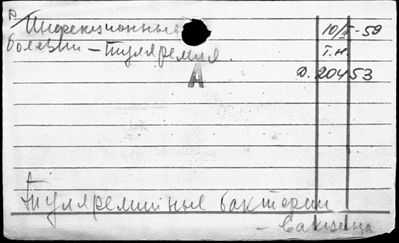 Инфекционные
болезни – туляремия.
10/I-59
Т.Н.
Д. 20453
А
Туляремийные бактерии
– Вакцина